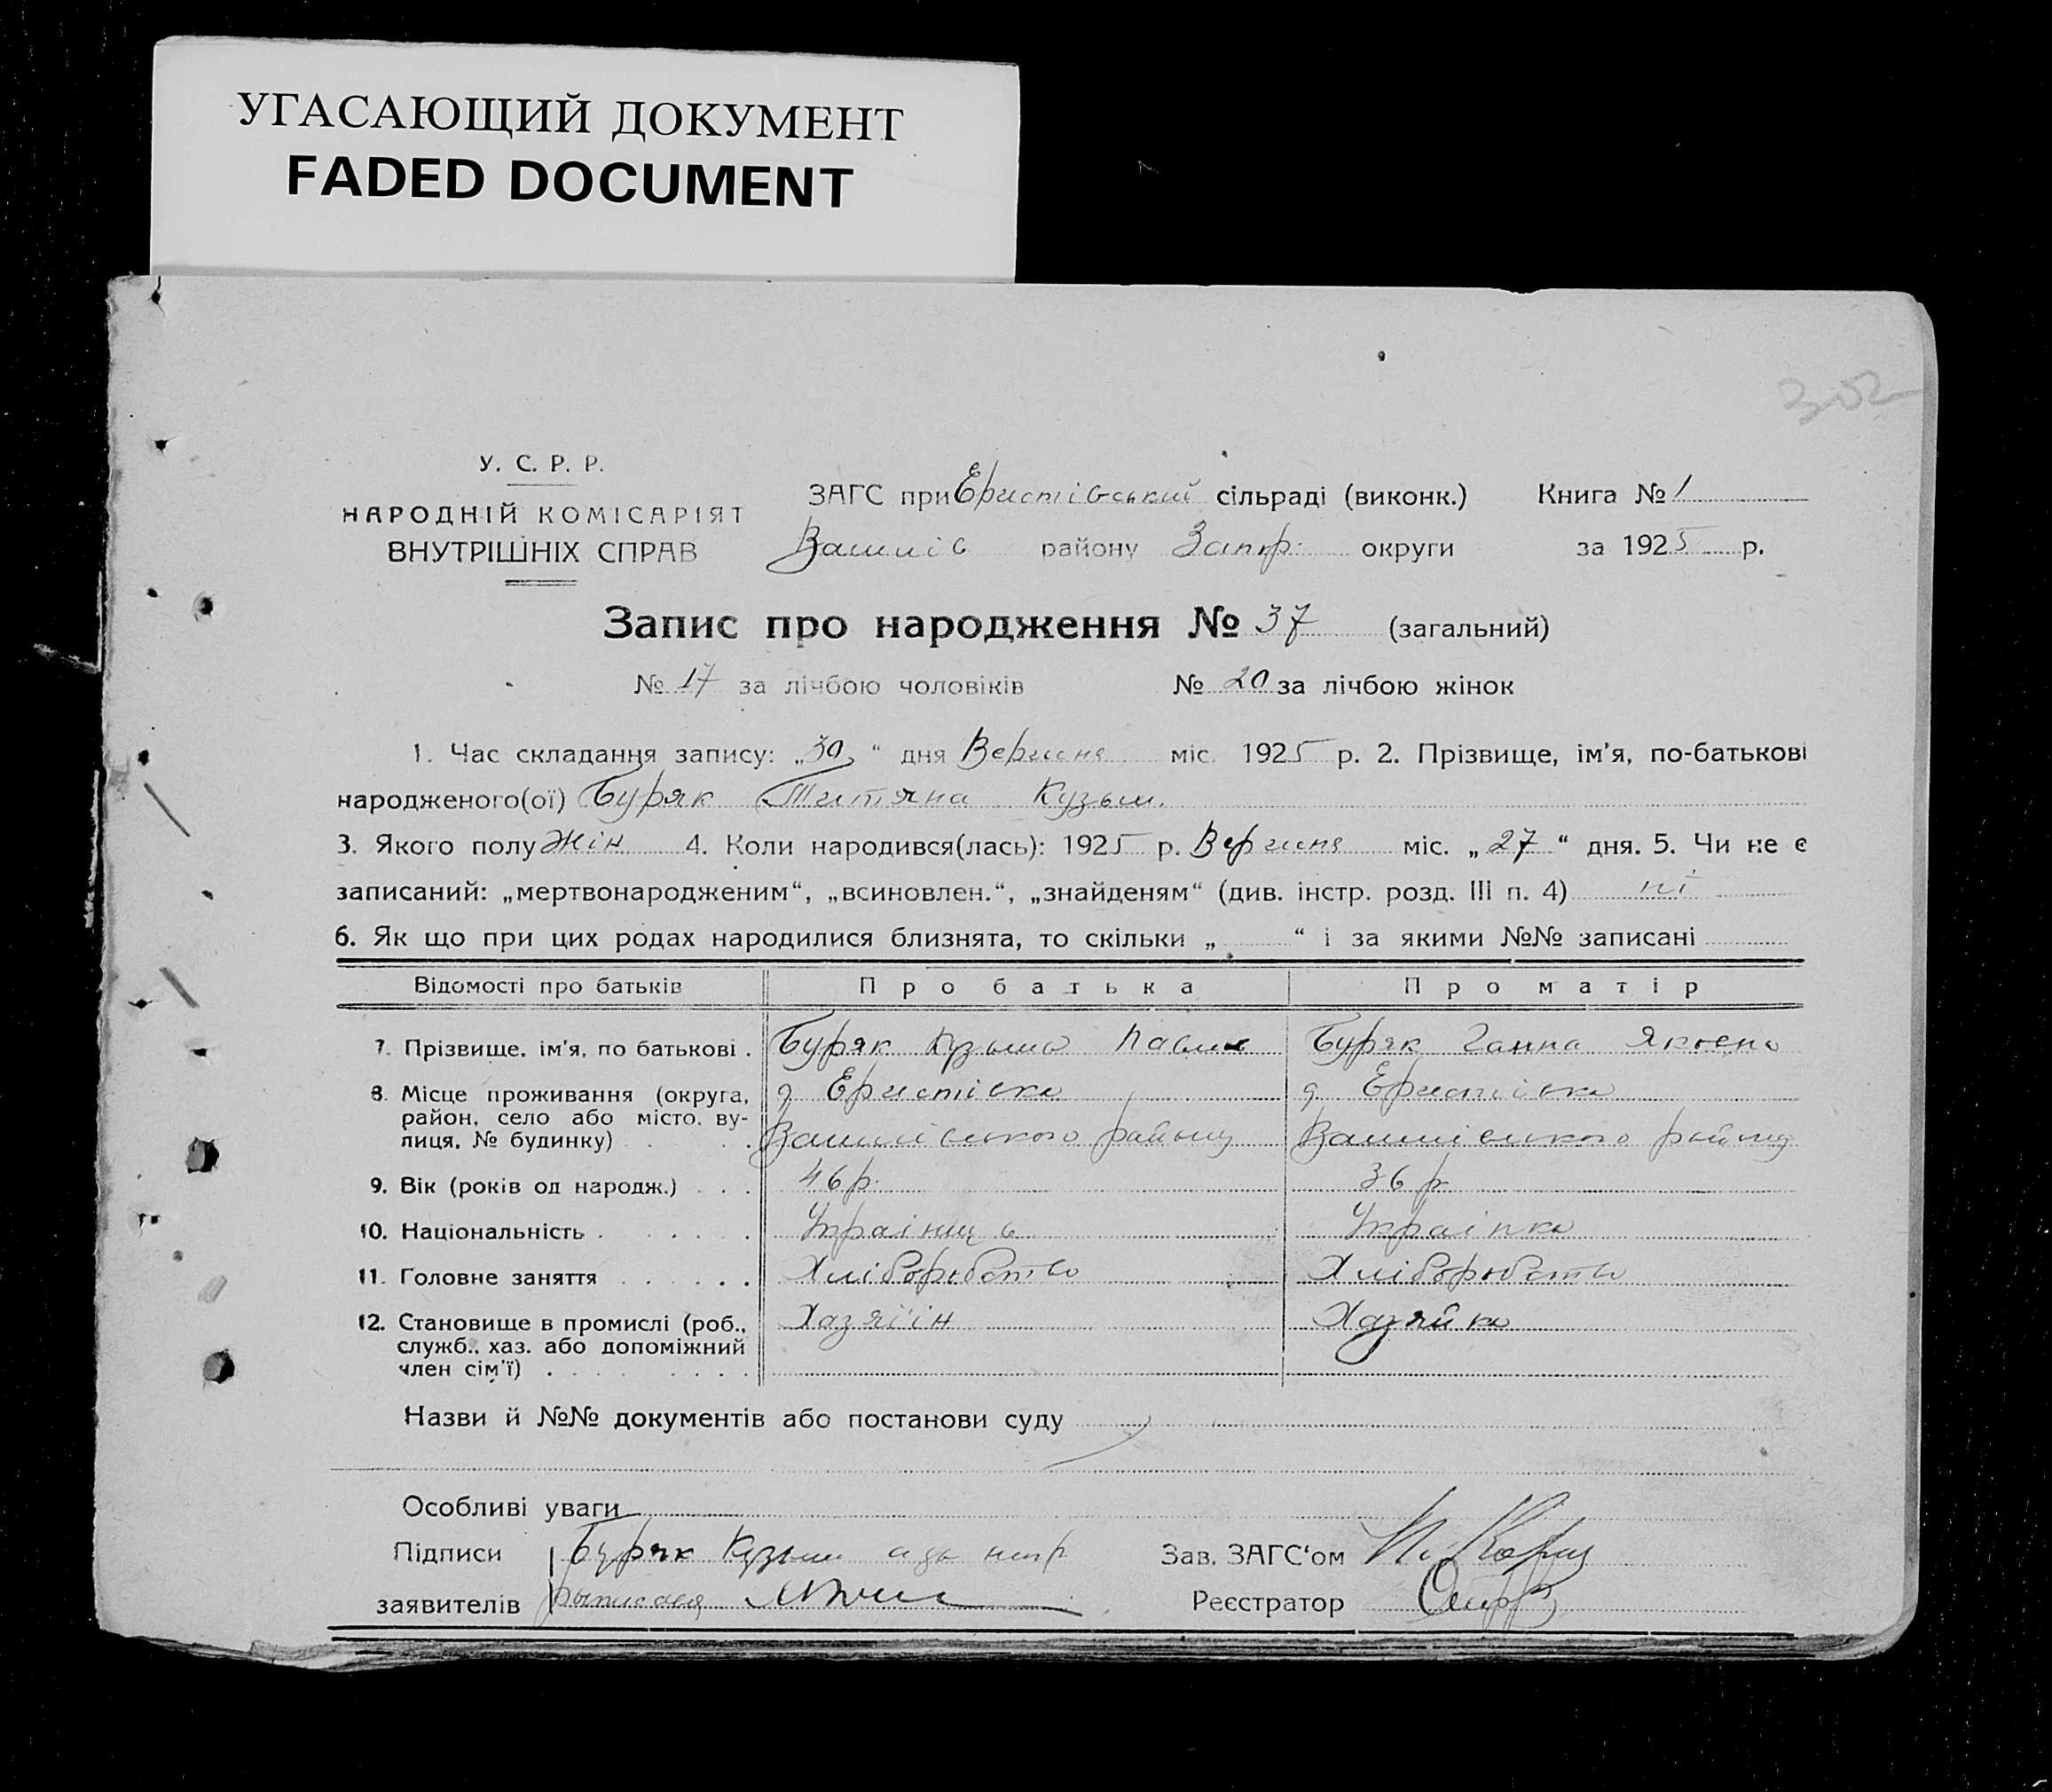 УГАСАЮЩИЙ ДОКУМЕНТ
FADED DOCUMENT
302
У. С. Р. Р.
НАРОДНІЙ КОМІСАРІЯТ
ВНУТРІШНІХ СПРАВ
ЗАГС при Еристівський сільраді (виконк.) Книга № 1
району Запор. округи за 1925 р.
Запис про народження № 37 (загальний)
№ 17 за лічбою чоловіків № 20 за лічбою жінок
1. Час складання запису: „30“ дня Вересня міс. 1925 р. 2. Прізвище, ім'я, по-батькові
народженого(ої) Буряк Титяна Кузьм.
3. Якого полу жін 4. Коли народився(лась): 1925 р. Вересня міс. „27“ дня. 5. Чи не є
записаний: „мертвонародженим“, „всиновлен.“, „знайденям“ (див. інстр. розд. III п. 4) ні
6. Як що при цих родах народилися близнята, то скільки „ “ і за якими №№ записані
Відомості про батьків Про батька Про матір
7. Прізвище, ім'я, по батькові . Буряк Кузьма Павл Буряк Ганна Яковна
8. Місце проживання (округа, д Еристівка д Еристівка
район, село або місто, ву-
лиця, № будинку) . . . району району
9. Вік (років од народж.) . . . 46 р. 36 р
10. Національність . . . . . . Українець Українка
11. Головне заняття . . . . . . Хліборобство Хліборобство
12. Становище в промислі (роб., Хазяїін Хазяйка
служб., хаз. або допоміжний
член сім'ї) . . . . . . . . .
Назви й №№ документів або постанови суду
Особливі уваги
Підписи Буряк Кузьма Зав. ЗАГС‘ом
заявителів Реєстратор